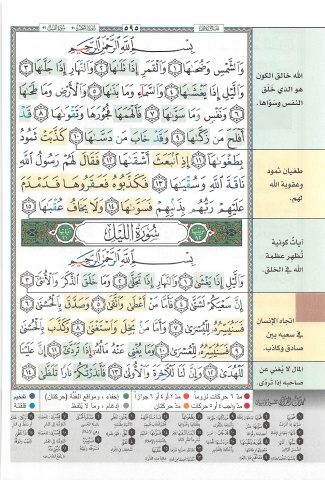 ٥٩٥
بِسْمِ اللَّهِ الرَّحْمَٰنِ الرَّحِيمِ
وَالشَّمْسِ وَضُحَاهَا ١ وَالْقَمَرِ إِذَا تَلَاهَا ٢ وَالنَّهَارِ إِذَا جَلَّاهَا ٣
وَاللَّيْلِ إِذَا يَغْشَاهَا ٤ وَالسَّمَاءِ وَمَا بَنَاهَا ٥ وَالْأَرْضِ وَمَا طَحَاهَا
٦ وَنَفْسٍ وَمَا سَوَّاهَا ٧ فَأَلْهَمَهَا فُجُورَهَا وَتَقْوَاهَا ٨ قَدْ
أَفْلَحَ مَن زَكَّاهَا ٩ وَقَدْ خَابَ مَن دَسَّاهَا ١٠ كَذَّبَتْ ثَمُودُ
بِطَغْوَاهَا ١١ إِذِ انبَعَثَ أَشْقَاهَا ١٢ فَقَالَ لَهُمْ رَسُولُ اللَّهِ
نَاقَةَ اللَّهِ وَسُقْيَاهَا ١٣ فَكَذَّبُوهُ فَعَقَرُوهَا فَدَمْدَمَ
عَلَيْهِمْ رَبُّهُم بِذَنبِهِمْ فَسَوَّاهَا ١٤ وَلَا يَخَافُ عُقْبَاهَا ١٥
سُورَةُ اللَّيْلِ
بِسْمِ اللَّهِ الرَّحْمَٰنِ الرَّحِيمِ
وَاللَّيْلِ إِذَا يَغْشَىٰ ١ وَالنَّهَارِ إِذَا تَجَلَّىٰ ٢ وَمَا خَلَقَ الذَّكَرَ وَالْأُنثَىٰ ٣
إِنَّ سَعْيَكُمْ لَشَتَّىٰ ٤ فَأَمَّا مَنْ أَعْطَىٰ وَاتَّقَىٰ ٥ وَصَدَّقَ بِالْحُسْنَىٰ ٦
فَسَنُيَسِّرُهُ لِلْيُسْرَىٰ ٧ وَأَمَّا مَن بَخِلَ وَاسْتَغْنَىٰ ٨ وَكَذَّبَ بِالْحُسْنَىٰ
٩ فَسَنُيَسِّرُهُ لِلْعُسْرَىٰ ١٠ وَمَا يُغْنِي عَنْهُ مَالُهُ إِذَا تَرَدَّىٰ ١١ إِنَّ عَلَيْنَا
لَلْهُدَىٰ ١٢ وَإِنَّ لَنَا لَلْآخِرَةَ وَالْأُولَىٰ ١٣ فَأَنذَرْتُكُمْ نَارًا تَلَظَّىٰ ١٤
الله خالق الكون
هو الذي خلق
النفس وسوّاها.
طغيان ثمود
وعقوبة الله
لهم.
آيات كونية
تُظهر عظمة
الله في الخلق.
اتجاه الإنسان
في سعيه بين
صادق وكاذب.
المال لا يُغني عن
صاحبه إذا تردّى.
مدّ ٦ حركات لزوماً
مدّ ٢ أو ٤ أو ٦ جوازاً
إخفاء، ومواقع الغُنّة (حركتان)
تفخيم
مدّ واجب ٤ أو ٥ حركات
مدّ حركتان
إدغام، وما لا يُلفظ
قلقلة